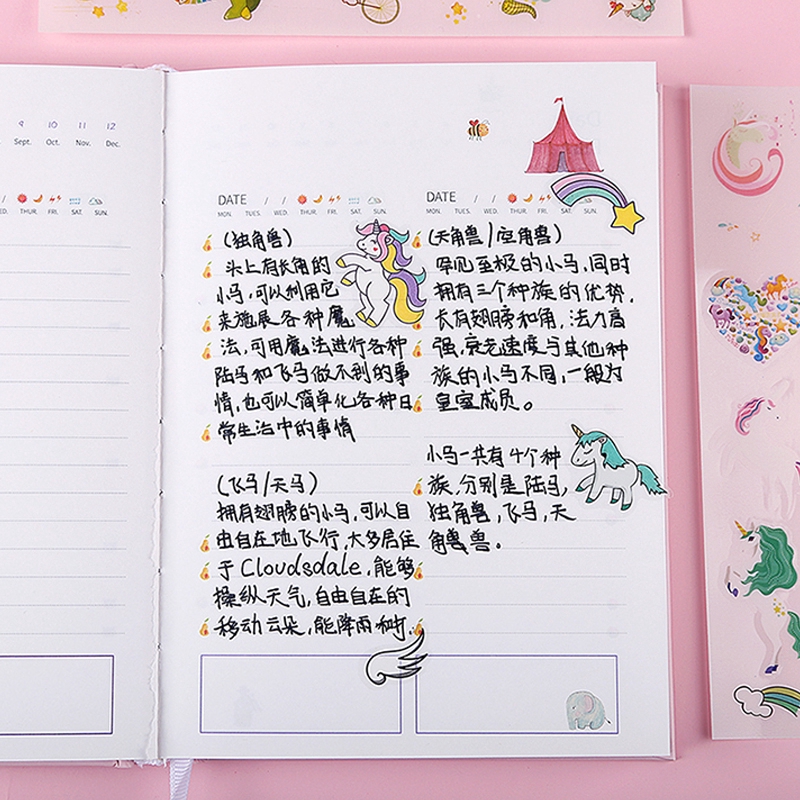 9 10 11 12
Sept. Oct. Nov. Dec.
THUR. FRI. SAT. SUN.
DATE / /
MON. TUES. WED. THUR. FRI. SAT. SUN.
(独角兽)
头上有长角的
小马,可以利用它
来施展各种魔
法,可用魔法进行各种
陆马和飞马做不到的事
情,也可以简单化各种日
常生活中的事情
(飞马/天马)
拥有翅膀的小马,可以自
由自在地飞行,大多居住
于Cloudsdale,能够
操纵天气,自由自在的
移动云朵,能降雨
DATE / /
MON. TUES. WED. THUR. FRI. SAT. SUN.
(天角兽/空角兽)
罕见至极的小马,同时
拥有三个种族的优势,
长有翅膀和角,法力高
强,衰老速度与其他种
族的小马不同,一般为
皇室成员。
小马一共有4个种
族,分别是陆马,
独角兽,飞马,天
角兽。